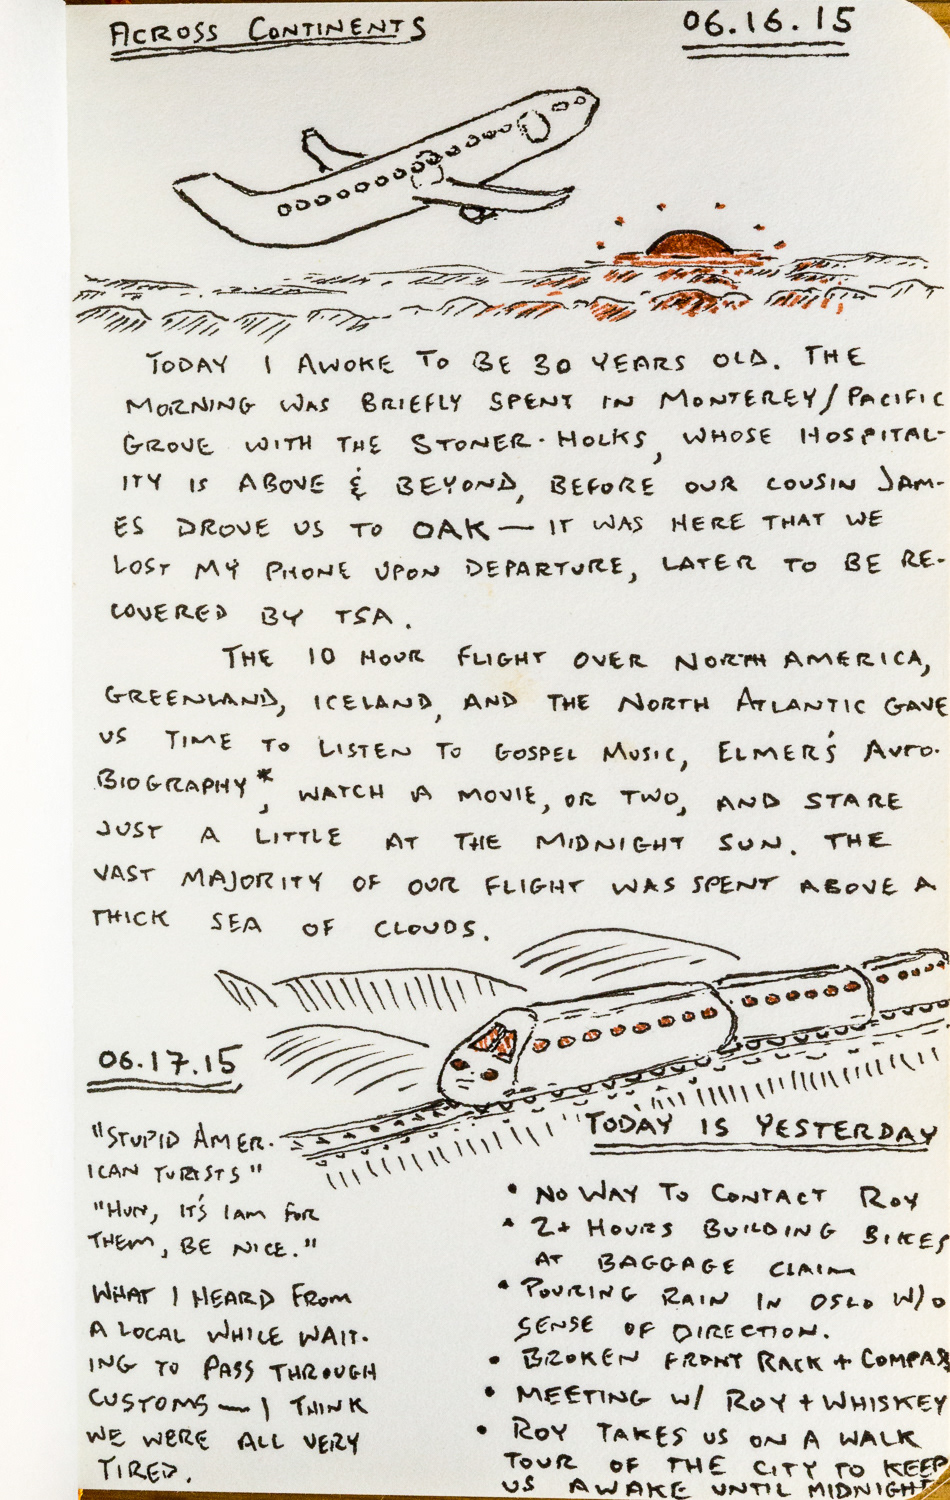 ACROSS CONTINENTS
06.16.15
TODAY I AWOKE TO BE 30 YEARS OLD. THE
MORNING WAS BRIEFLY SPENT IN MONTEREY/PACIFIC
GROVE WITH THE STONER-HOLKS, WHOSE HOSPITAL-
ITY IS ABOVE & BEYOND, BEFORE OUR COUSIN JAM-
ES DROVE US TO OAK — IT WAS HERE THAT WE
LOST MY PHONE UPON DEPARTURE, LATER TO BE RE-
COVERED BY TSA.
THE 10 HOUR FLIGHT OVER NORTH AMERICA,
GREENLAND, ICELAND, AND THE NORTH ATLANTIC GAVE
US TIME TO LISTEN TO GOSPEL MUSIC, ELMER'S AUTO-
BIOGRAPHY*, WATCH A MOVIE, OR TWO, AND STARE
JUST A LITTLE AT THE MIDNIGHT SUN. THE
VAST MAJORITY OF OUR FLIGHT WAS SPENT ABOVE A
THICK SEA OF CLOUDS.
06.17.15
"STUPID AMER-
ICAN TURISTS"
"HUN, IT'S 1AM FOR
THEM, BE NICE."
WHAT I HEARD FROM
A LOCAL WHILE WAIT-
ING TO PASS THROUGH
CUSTOMS — I THINK
WE WERE ALL VERY
TIRED.
TODAY IS YESTERDAY
• NO WAY TO CONTACT ROY
• 2+ HOURS BUILDING BIKES
AT BAGGAGE CLAIM
• POURING RAIN IN OSLO W/O
SENSE OF DIRECTION.
• BROKEN FRONT RACK + COMPASS
• MEETING W/ ROY + WHISKEY
• ROY TAKES US ON A WALK
TOUR OF THE CITY TO KEEP
US AWAKE UNTIL MIDNIGHT